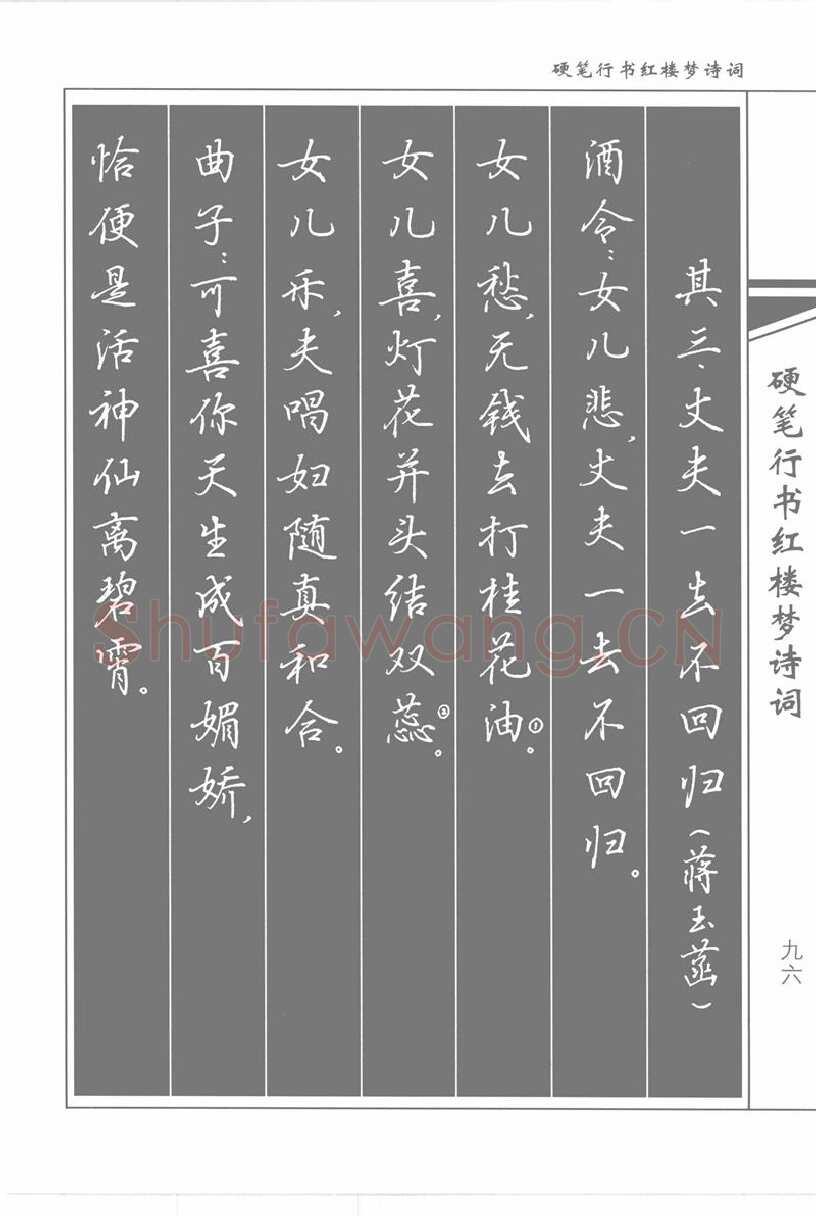 硬笔行书红楼梦诗词
其三、丈夫一去不回归（蒋玉菡）
酒令：女儿悲，丈夫一去不回归。
女儿愁，无钱去打桂花油①。
女儿喜，灯花并头结双蕊②。
女儿乐，夫唱妇随真和合。
曲子：可喜你天生成百媚娇，
恰便是活神仙离碧霄。
硬笔行书红楼梦诗词
九六
Shufawang.CN